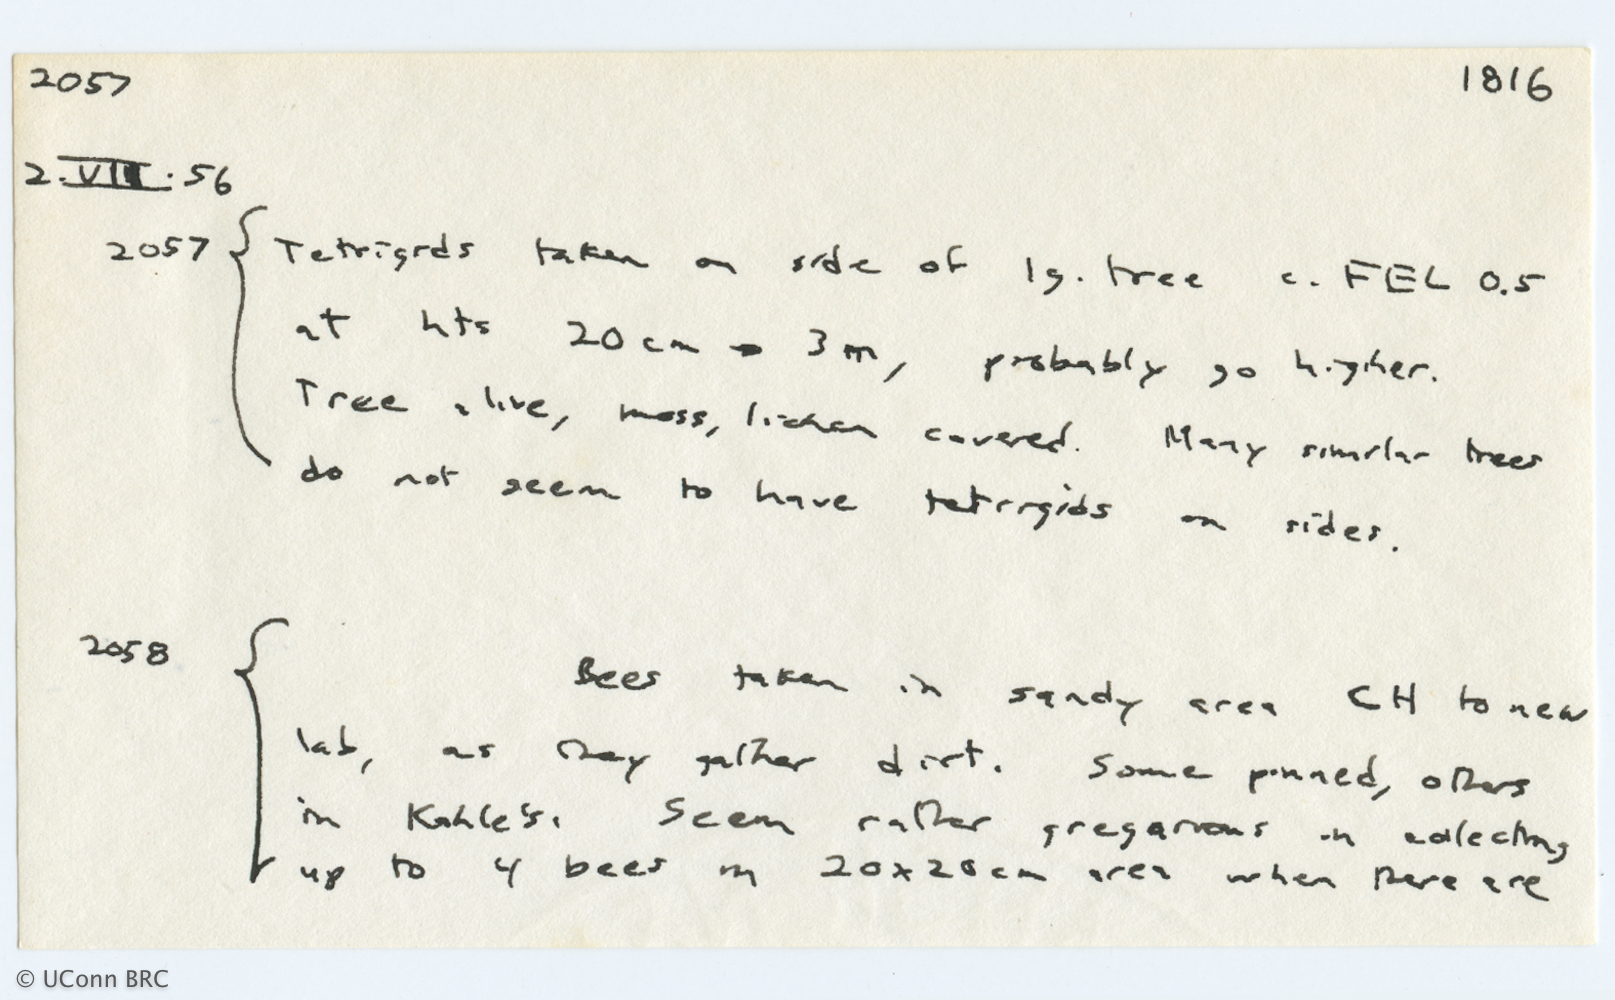 2057 1816
2.VIII.56
2057 { Tetrigids taken on side of lg. tree c. FEL 0.5
at hts 20 cm → 3 m, probably go higher.
Tree alive, moss, lichen covered. Many similar trees
do not seem to have tetrigids on sides.
2058 { Bees taken in sandy area CH to new
lab, as they gather dirt. Some pinned, others
in Kahle's. Seem rather gregarious in collecting
up to 4 bees in 20x20 cm area when there are
© UConn BRC